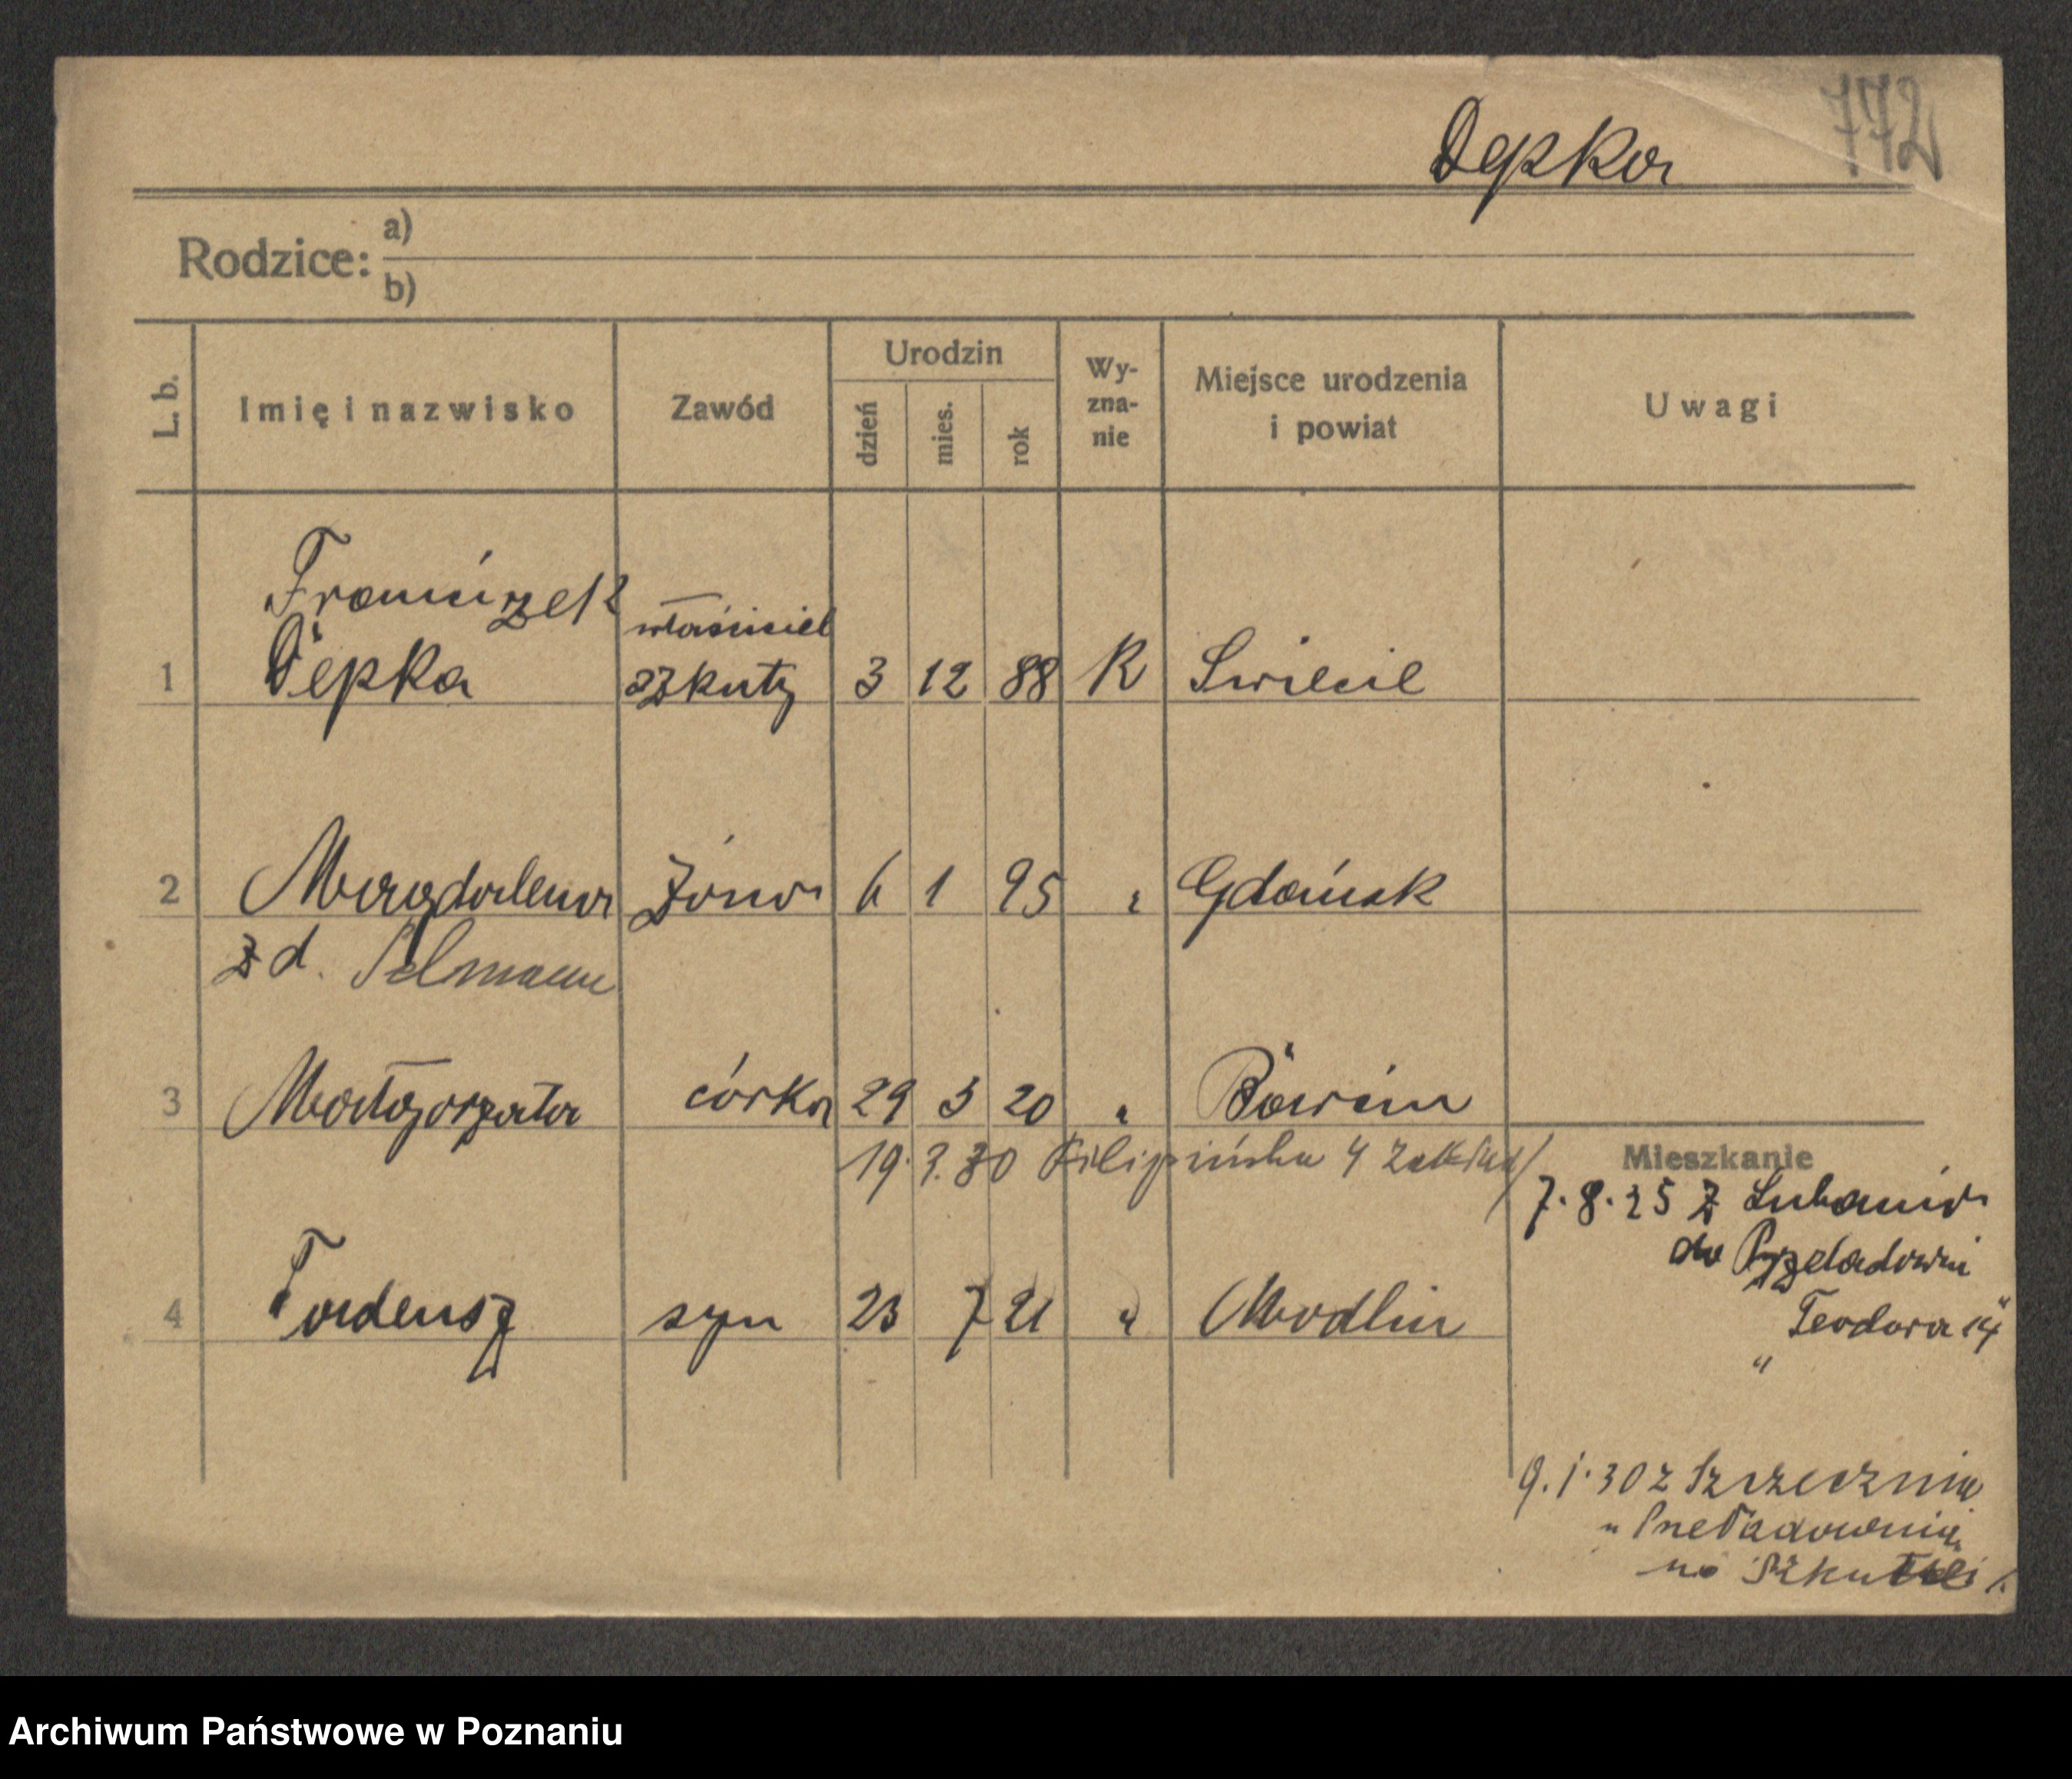 772
Depka
Rodzice: a)
b)
L. b.
Imię i nazwisko
Zawód
Urodzin
dzień
mies.
rok
Wy-
zna-
nie
Miejsce urodzenia
i powiat
Uwagi
Franciszek
właściciel
1 Depka szkuty 3 12 88 R Swiecie
2 Magdalena żona 6 1 95 " Gdańsk
z d.
3 Małgorzata córka 29 3 20 "
19. 3. 30 Filipińska 4
Mieszkanie
7. 8. 25 z Lubania
do Przeladowni
Teodora 14
"
4 Tadeusz syn 23 7 21 " Modlin
9. 1. 30 z
"
na
Archiwum Państwowe w Poznaniu